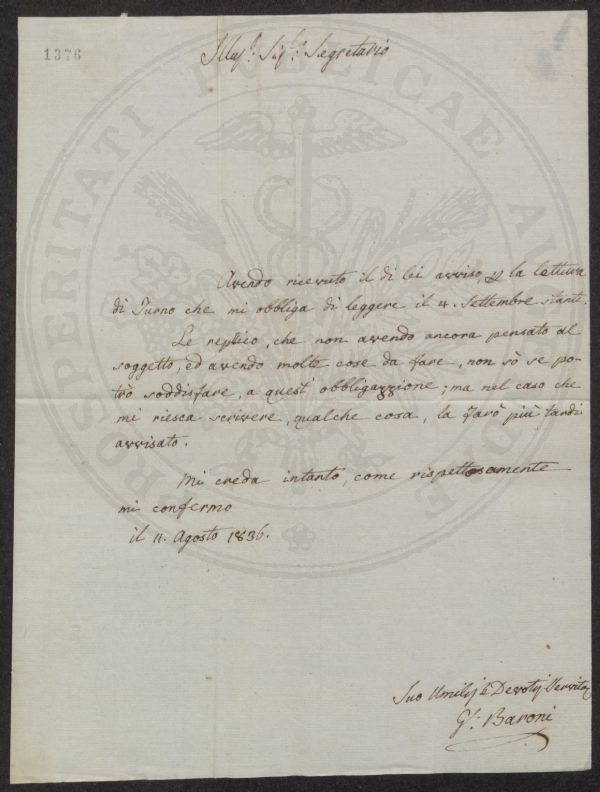 1376
Illus.e Sig.e Segretario
Avendo ricevuto il di lei avviso, p la lettura
di Turno che mi obbliga di leggere il 4. Settembre
Le replico, che non avendo ancora pensato al
soggetto, ed avendo molte cose da fare, non sò se po-
trò soddisfare, a quest' obbligazzione; ma nel caso che
mi riesca scrivere, qualche cosa, la farò più tardi
avvisato.
Mi creda intanto, come rispettosamente
mi confermo
il 11. Agosto 1836.
Suo Devot
G. Baroni
PROSPERITATI PUBLICAE AUGENDAE